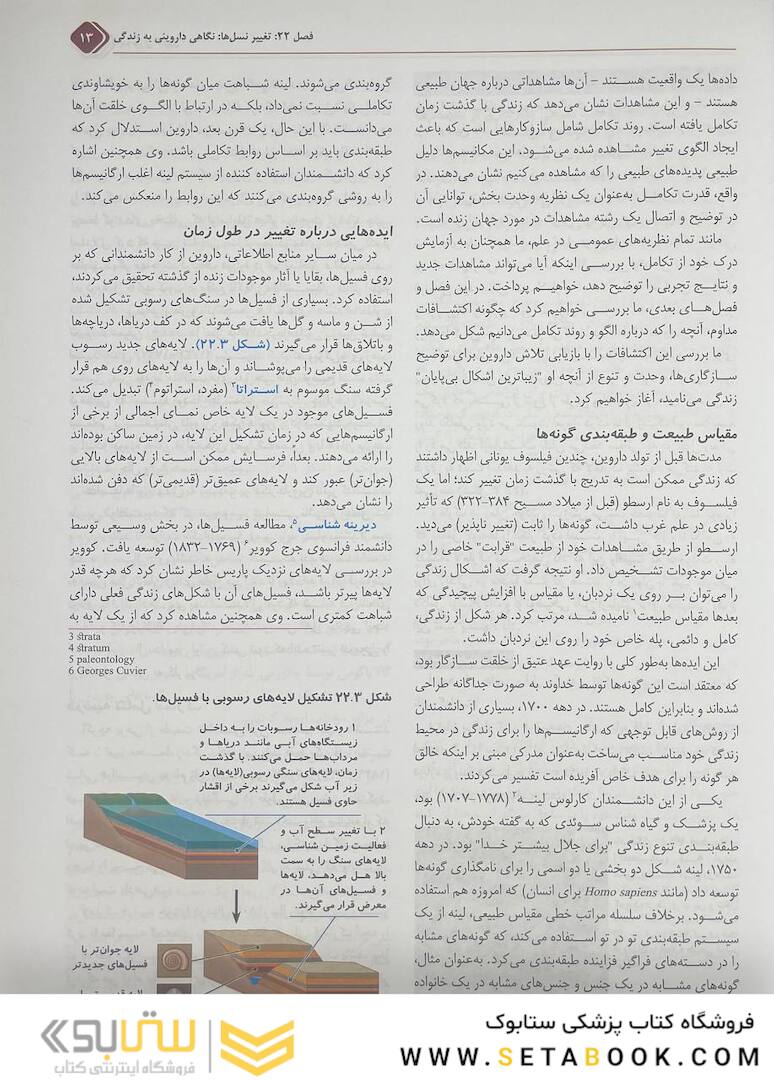 فصل ۲۲: تغییر نسل‌ها: نگاهی داروینی به زندگی
۱۳
داده‌ها یک واقعیت هستند – آن‌ها مشاهداتی درباره جهان طبیعی
هستند – و این مشاهدات نشان می‌دهد که زندگی با گذشت زمان
تکامل یافته است. روند تکامل شامل سازوکارهایی است که باعث
ایجاد الگوی تغییر مشاهده شده می‌شود. این مکانیسم‌ها دلیل
طبیعی پدیده‌های طبیعی را که مشاهده می‌کنیم نشان می‌دهند. در
واقع، قدرت تکامل به‌عنوان یک نظریه وحدت بخش، توانایی آن
در توضیح و اتصال یک رشته مشاهدات در مورد جهان زنده است.
مانند تمام نظریه‌های عمومی در علم، ما همچنان به آزمایش
درک خود از تکامل، با بررسی اینکه آیا می‌تواند مشاهدات جدید
و نتایج تجربی را توضیح دهد، خواهیم پرداخت. در این فصل و
فصل‌های بعدی، ما بررسی خواهیم کرد که چگونه اکتشافات
مداوم، آنچه را که درباره الگو و روند تکامل می‌دانیم شکل می‌دهد.
ما بررسی این اکتشافات را با بازیابی تلاش داروین برای توضیح
سازگاری‌ها، وحدت و تنوع از آنچه او "زیباترین اشکال بی‌پایان"
زندگی می‌نامید، آغاز خواهیم کرد.
مقیاس طبیعت و طبقه‌بندی گونه‌ها
مدت‌ها قبل از تولد داروین، چندین فیلسوف یونانی اظهار داشتند
که زندگی ممکن است به تدریج با گذشت زمان تغییر کند؛ اما یک
فیلسوف به نام ارسطو (قبل از میلاد مسیح ۳۸۴-۳۲۲) که تأثیر
زیادی در علم غرب داشت، گونه‌ها را ثابت (تغییر ناپذیر) می‌دید.
ارسطو از طریق مشاهدات خود از طبیعت "قرابت" خاصی را در
میان موجودات تشخیص داد. او نتیجه گرفت که اشکال زندگی
را می‌توان بر روی یک نردبان، یا مقیاس با افزایش پیچیدگی که
بعدها مقیاس طبیعت۱ نامیده شد، مرتب کرد. هر شکل از زندگی،
کامل و دائمی، پله خاص خود را روی این نردبان داشت.
این ایده‌ها به‌طور کلی با روایت عهد عتیق از خلقت سازگار بود،
که معتقد است این گونه‌ها توسط خداوند به صورت جداگانه طراحی
شده‌اند و بنابراین کامل هستند. در دهه ۱۷۰۰، بسیاری از دانشمندان
از روش‌های قابل توجهی که ارگانیسم‌ها را برای زندگی در محیط
زندگی خود مناسب می‌ساخت به‌عنوان مدرکی مبنی بر اینکه خالق
هر گونه را برای هدف خاص آفریده است تفسیر می‌کردند.
یکی از این دانشمندان کارلوس لینه۲ (۱۷۷۸-۱۷۰۷) بود،
یک پزشک و گیاه شناس سوئدی که به گفته خودش، به دنبال
طبقه‌بندی تنوع زندگی "برای جلال بیشتر خدا" بود. در دهه
۱۷۵۰، لینه شکل دو بخشی یا دو اسمی را برای نامگذاری گونه‌ها
توسعه داد (مانند Homo sapiens برای انسان) که امروزه هم استفاده
می‌شود. برخلاف سلسله مراتب خطی مقیاس طبیعی، لینه از یک
سیستم طبقه‌بندی تو در تو استفاده می‌کند، که گونه‌های مشابه
را در دسته‌های فراگیر فزاینده طبقه‌بندی می‌کرد. به‌عنوان مثال،
گونه‌های مشابه در یک جنس و جنس‌های مشابه در یک خانواده
گروه‌بندی می‌شوند. لینه شباهت میان گونه‌ها را به خویشاوندی
تکاملی نسبت نمی‌داد، بلکه در ارتباط با الگوی خلقت آن‌ها
می‌دانست. با این حال، یک قرن بعد، داروین استدلال کرد که
طبقه‌بندی باید بر اساس روابط تکاملی باشد. وی همچنین اشاره
کرد که دانشمندان استفاده کننده از سیستم لینه اغلب ارگانیسم‌ها
را به روشی گروه‌بندی می‌کنند که این روابط را منعکس می‌کند.
ایده‌هایی درباره تغییر در طول زمان
در میان سایر منابع اطلاعاتی، داروین از کار دانشمندانی که بر
روی فسیل‌ها، بقایا یا آثار موجودات زنده از گذشته تحقیق می‌کردند،
استفاده کرد. بسیاری از فسیل‌ها در سنگ‌های رسوبی تشکیل شده
از شن و ماسه و گل‌ها یافت می‌شوند که در کف دریاها، دریاچه‌ها
و باتلاق‌ها قرار می‌گیرند (شکل ۲۲.۳). لایه‌های جدید رسوب
لایه‌های قدیمی را می‌پوشاند و آن‌ها را به لایه‌های روی هم قرار
گرفته سنگ موسوم به استراتا۳ (مفرد، استراتوم۴) تبدیل می‌کند.
فسیل‌های موجود در یک لایه خاص نمای اجمالی از برخی از
ارگانیسم‌هایی که در زمان تشکیل این لایه، در زمین ساکن بوده‌اند
را ارائه می‌دهند. بعداً، فرسایش ممکن است از لایه‌های بالایی
(جوان‌تر) عبور کند و لایه‌های عمیق‌تر (قدیمی‌تر) که دفن شده‌اند
را نشان می‌دهد.
دیرینه شناسی۵، مطالعه فسیل‌ها، در بخش وسیعی توسط
دانشمند فرانسوی جرج کوویر۶ (۱۷۶۹-۱۸۳۲) توسعه یافت. کوویر
در بررسی لایه‌های نزدیک پاریس خاطر نشان کرد که هرچه قدر
لایه‌ها پیرتر باشد، فسیل‌های آن با شکل‌های زندگی فعلی دارای
شباهت کمتری است. وی همچنین مشاهده کرد که از یک لایه به
3 strata
4 stratum
5 paleontology
6 Georges Cuvier
شکل ۲۲.۳ تشکیل لایه‌های رسوبی با فسیل‌ها.
۱ رودخانه‌ها رسوبات را به داخل
زیستگاه‌های آبی مانند دریاها و
مرداب‌ها حمل می‌کنند. با گذشت
زمان، لایه‌های سنگی رسوبی(لایه‌ها) در
زیر آب شکل می‌گیرند برخی از اقشار
حاوی فسیل هستند.
۲ با تغییر سطح آب و
فعالیت زمین شناسی،
لایه‌های سنگ را به سمت
بالا هل می‌دهد، لایه‌ها
و فسیل‌های آن‌ها در
معرض قرار می‌گیرند.
لایه جوان‌تر با
فسیل‌های جدیدتر
فروشگاه کتاب پزشکی ستابوک
WWW.SETABOOK.COM
ستابوک
فروشگاه اینترنتی کتاب